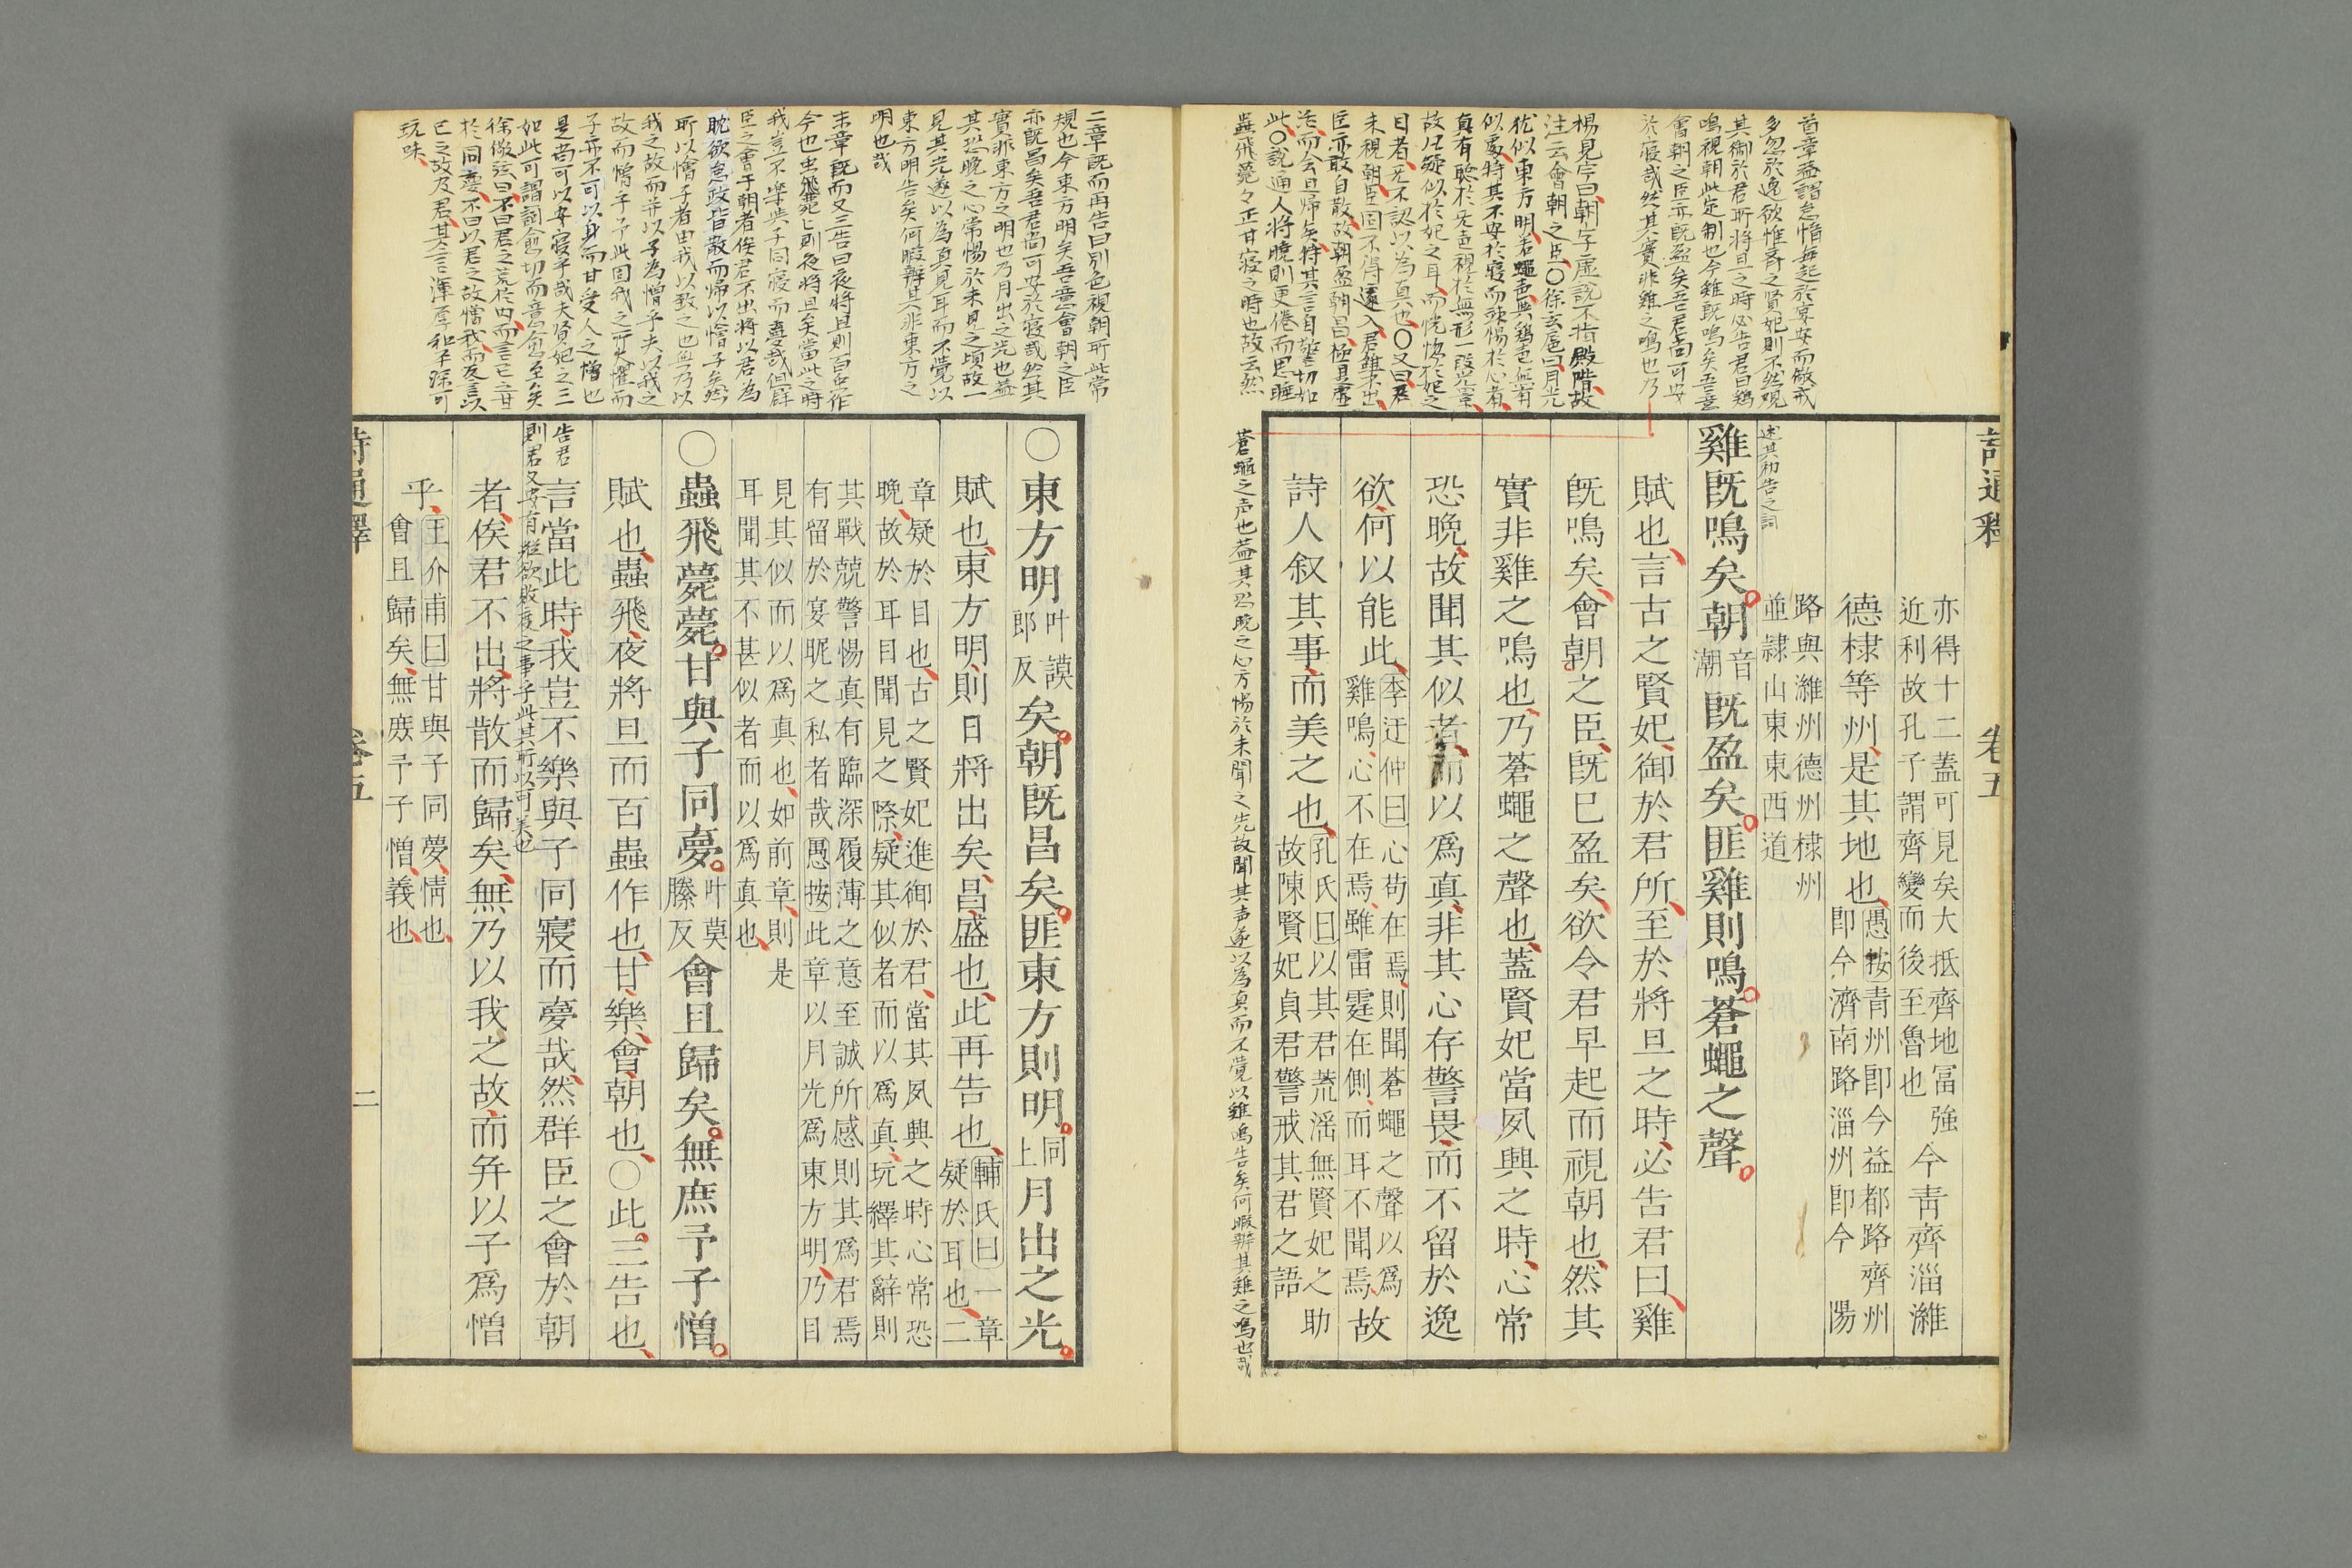 詩通釋
卷五
亦得十二蓋可見矣大抵齊地冨強
近利故孔子謂齊變而後至魯也
今青齊淄濰
德棣等州是其地也
愚按青州卽今益都路齊州
卽今濟南路淄州卽今
陽
路與濰州德州棣州
並隷山東東西道
述其初告之詞
雞旣鳴矣朝音潮旣盈矣匪雞則鳴蒼蠅之聲
賦也言古之賢妃御於君所至於將旦之時必告君曰雞
旣鳴矣會朝之臣旣已盈矣欲令君早起而視朝也然其
實非雞之鳴也乃蒼蠅之聲也蓋賢妃當夙興之時心常
恐晚故聞其似者而以爲真非其心存警畏而不留於逸
欲何以能此
李迂仲曰心苟在焉則聞蒼蠅之聲以爲
雞鳴心不在焉雖雷霆在側而耳不聞焉
故
詩人叙其事而美之也
孔氏曰以其君荒滛無賢妃之助
故陳賢妃貞君警戒其君之語
蒼蠅之声也蓋其恐晚之心方惕於未聞之先故聞其声遂以為真而不覚以雞鳴告矣何暇辨其雞之鳴也哉
首章蓋謂怠惰每起於宴安而儆戒
多忽於逸欲惟齊之賢妃則不然覌
其御於君所將旦之時必告君曰鶏
鳴視朝此定制也今雞旣鳴矣吾意
會朝之臣亦旣盈矣吾君尚可安
於寝哉然其實非雞之鳴也乃
楊見宇曰朝字虛說不指殿陛故
注云會朝之臣〇徐玄扈曰月光
犹似東方明若蠅声與鷄声無有
似處特其不安於寝而竦惕於心者
真有聴於无声視於無形一段光景
故凡疑似於妃之耳而恍惚於妃之
目者无不認以為真也〇又曰君
未視朝臣固不得遽入君雖不出
臣亦敢自散故朝盈朝昌極是虛
活而会且帰矣特其言自警切如
此〇說通人將曉則更倦而思睡
蟲飛薨々正甘寝之時也故云然
〇東方明叶謨郎反矣朝旣昌矣匪東方則明同上月出之光
賦也東方明則日將出矣昌盛也此再告也
輔氏曰一章
疑於耳也二
章疑於目也古之賢妃進御於君當其夙興之時心常恐
晚故於耳目聞見之際疑其似者而以爲真玩繹其辭則
其戰兢警惕真有臨深履薄之意至誠所感則其爲君焉
有留於宴昵之私者哉愚按此章以月光爲東方明乃目
見其似而以爲真也如前章則是
耳聞其不甚似者而以爲真也
〇蟲飛薨薨甘與子同夣叶莫縢反會且歸矣無庶予子憎
賦也蟲飛夜將旦而百蟲作也甘樂會朝也〇此三告也
告君
則君又安有從欲敗度之事乎此其所以可美也
言當此時我豈不樂與子同寢而夣哉然群臣之會於朝
者俟君不出將散而歸矣無乃以我之故而幷以子爲憎
乎
王介甫曰甘與子同夢情也
會且歸矣無庶予子憎義也
二章旣而再告曰別色視朝所此常
規也今東方明矣吾意會朝之臣
亦旣昌矣吾君尚可安於寝哉然其
實非東方之明也乃月出之光也蓋
其恐晚之心常惕於未見之頃故一
見其光遂以為真見耳而不覚以
東方明告矣何暇辨其非東方之
明也哉
末章旣而又三告曰夜將旦則百虫作
今也虫飛薨々則夜將旦矣當此之時
我豈不樂與子同寝而夣哉但群
臣之會于朝者俟君不出將以君為
眈欲怠政皆散而帰以憎子矣然
所以憎子者由我以致之也無乃以
我之故而并以子為憎乎夫以我之
故而憎子予此固我之所大懼而
子亦不可以身而甘受人之憎也
是尚可以安寝乎哉夫賢妃之三
如此可謂詞愈切而意愈至矣
徐儆弦曰不曰君之荒於内而言己之甘
於同夣不曰以君之故憎我而反言以
己之故及君其言渾厚和平深可
玩味
詩通釋
卷五
二